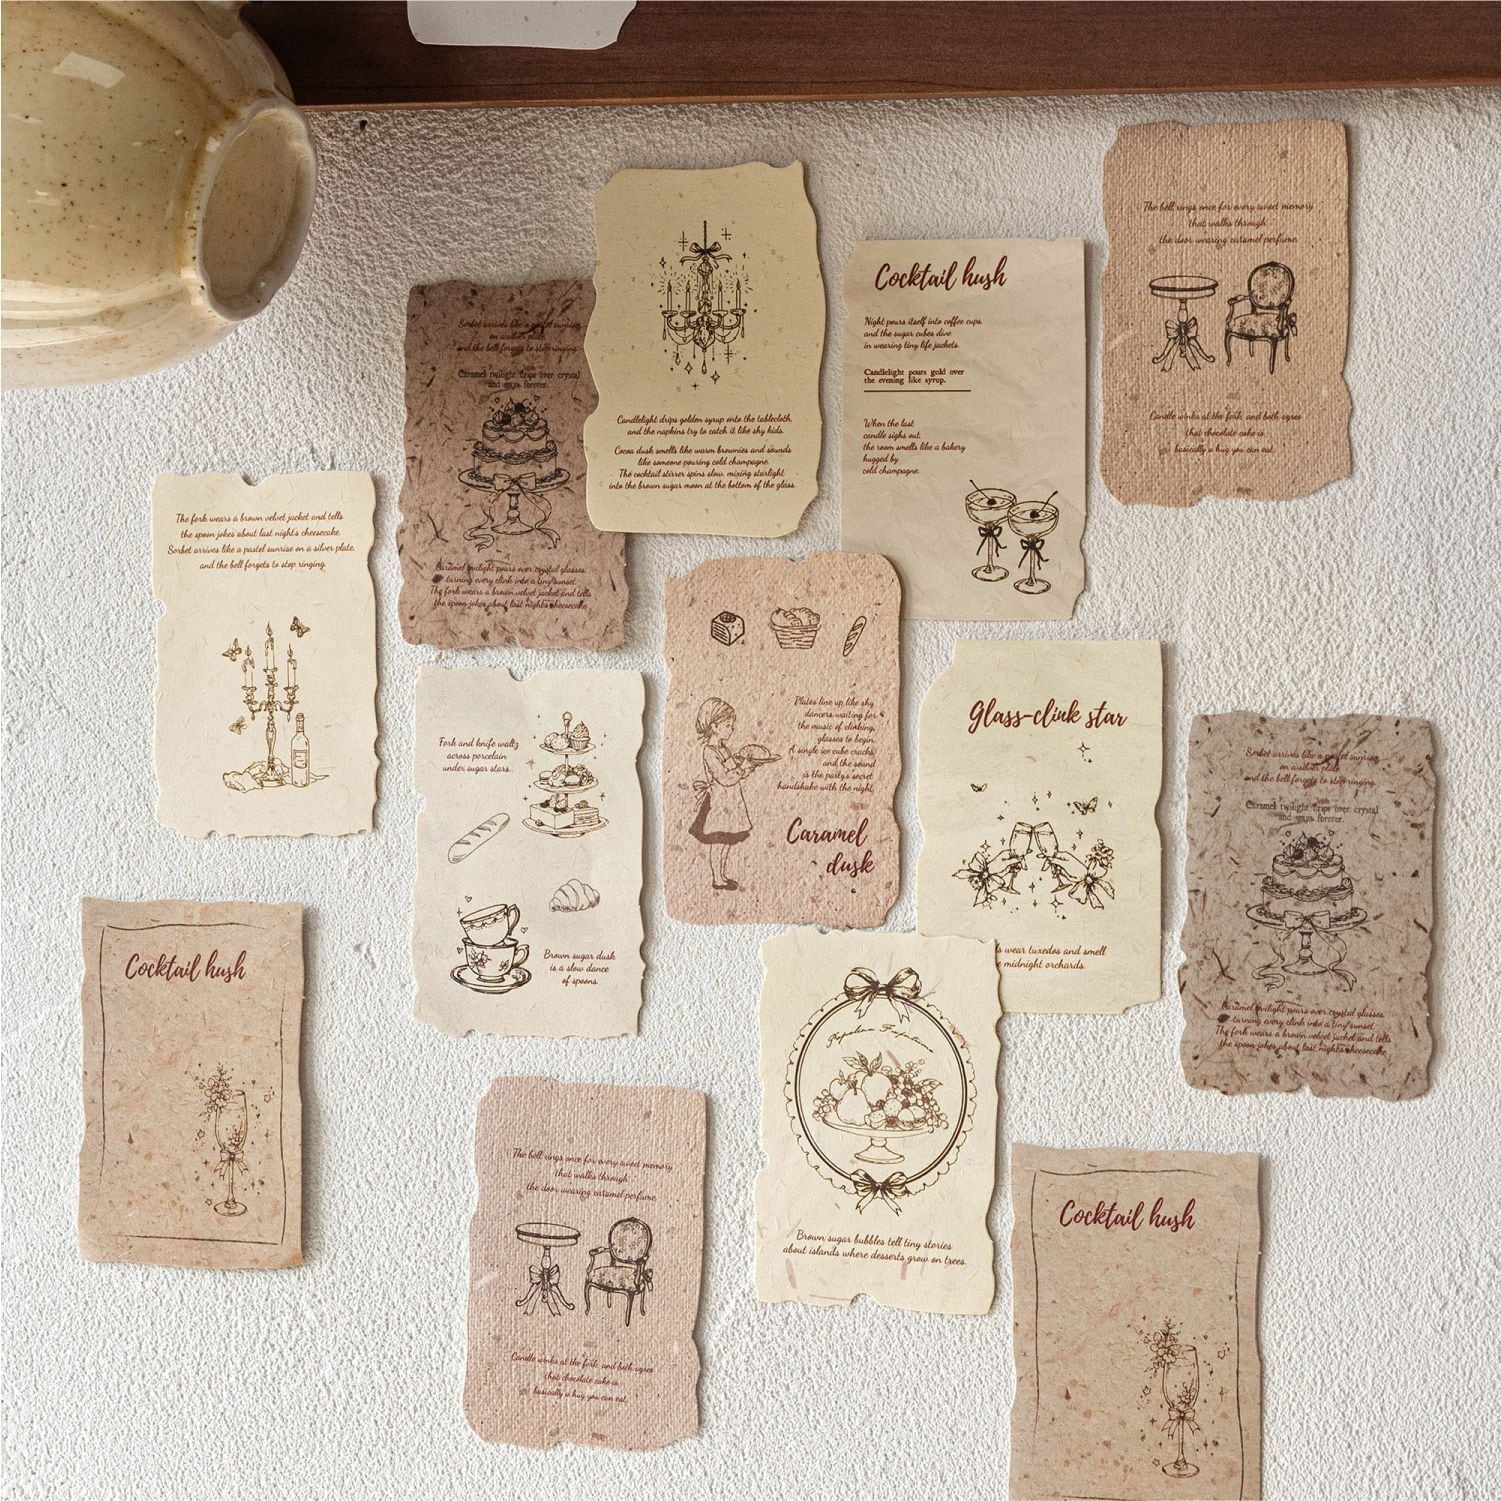 Sorbet arrives like a pastel sunrise
on a silver plate,
and the bell forgets to stop ringing.
Caramel twilight drips over crystal
and stays forever.
Caramel twilight pours over crystal glasses
turning every clink into a tiny sunset.
The fork wears a brown velvet jacket and tells
the spoon jokes about last night's cheesecake.
Candlelight drips golden syrup onto the tablecloth,
and the napkins try to catch it like shy kids.
Cocoa dusk smells like warm brownies and sounds
like someone pouring cold champagne.
The cocktail stirrer spins slow, mixing starlight
into the brown sugar moon at the bottom of the glass.
Cocktail hush
Night pours itself into coffee cups,
and the sugar cubes dive
in wearing tiny life jackets.
Candlelight pours gold over
the evening like syrup.
When the last
candle sighs out,
the room smells like a bakery
hugged by
cold champagne.
The bell rings once for every sweet memory
that walks through
the door wearing caramel perfume.
Candle winks at the fork, and both agree
that chocolate cake is
basically a hug you can eat.
The fork wears a brown velvet jacket and tells
the spoon jokes about last night's cheesecake.
Sorbet arrives like a pastel sunrise on a silver plate,
and the bell forgets to stop ringing.
Fork and knife waltz
across porcelain
under sugar stars.
Brown sugar dusk
is a slow dance
of spoons.
Plates line up like shy
dancers waiting for
the music of clinking
glasses to begin.
A single ice cube cracks,
and the sound
is the party's secret
handshake with the night.
Caramel
dusk
Glass-clink star
wear tuxedos and smell
midnight orchards.
Sorbet arrives like a pastel sunrise
on a silver plate,
and the bell forgets to stop ringing.
Caramel twilight drips over crystal
and stays forever.
Caramel twilight pours over crystal glasses
turning every clink into a tiny sunset.
The fork wears a brown velvet jacket and tells
the spoon jokes about last night's cheesecake.
Cocktail hush
The bell rings once for every sweet memory
that walks through
the door wearing caramel perfume.
Candle winks at the fork, and both agree
that chocolate cake is
basically a hug you can eat.
Brown sugar bubbles tell tiny stories
about islands where desserts grow on trees.
Cocktail hush